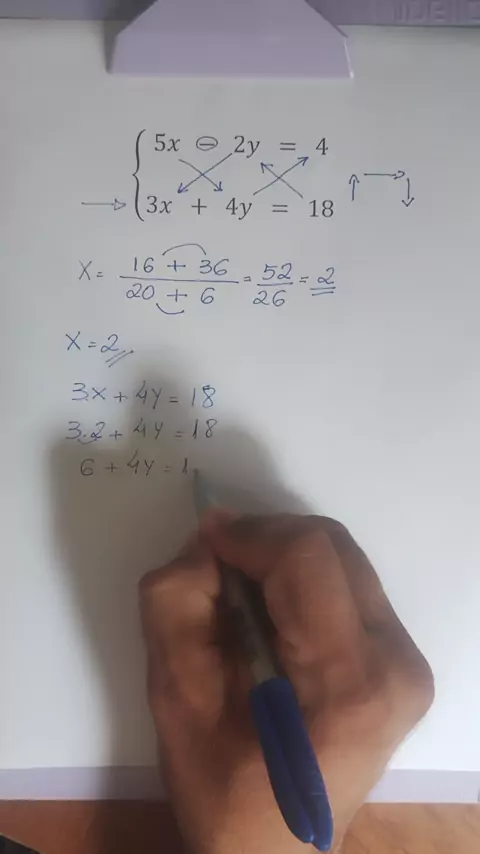 5x ⊖ 2y = 4
3x + 4y = 18
X = 16 + 36 / 20 + 6 = 52 / 26 = 2
X = 2
3x + 4y = 18
3.2 + 4y = 18
6 + 4y = 1